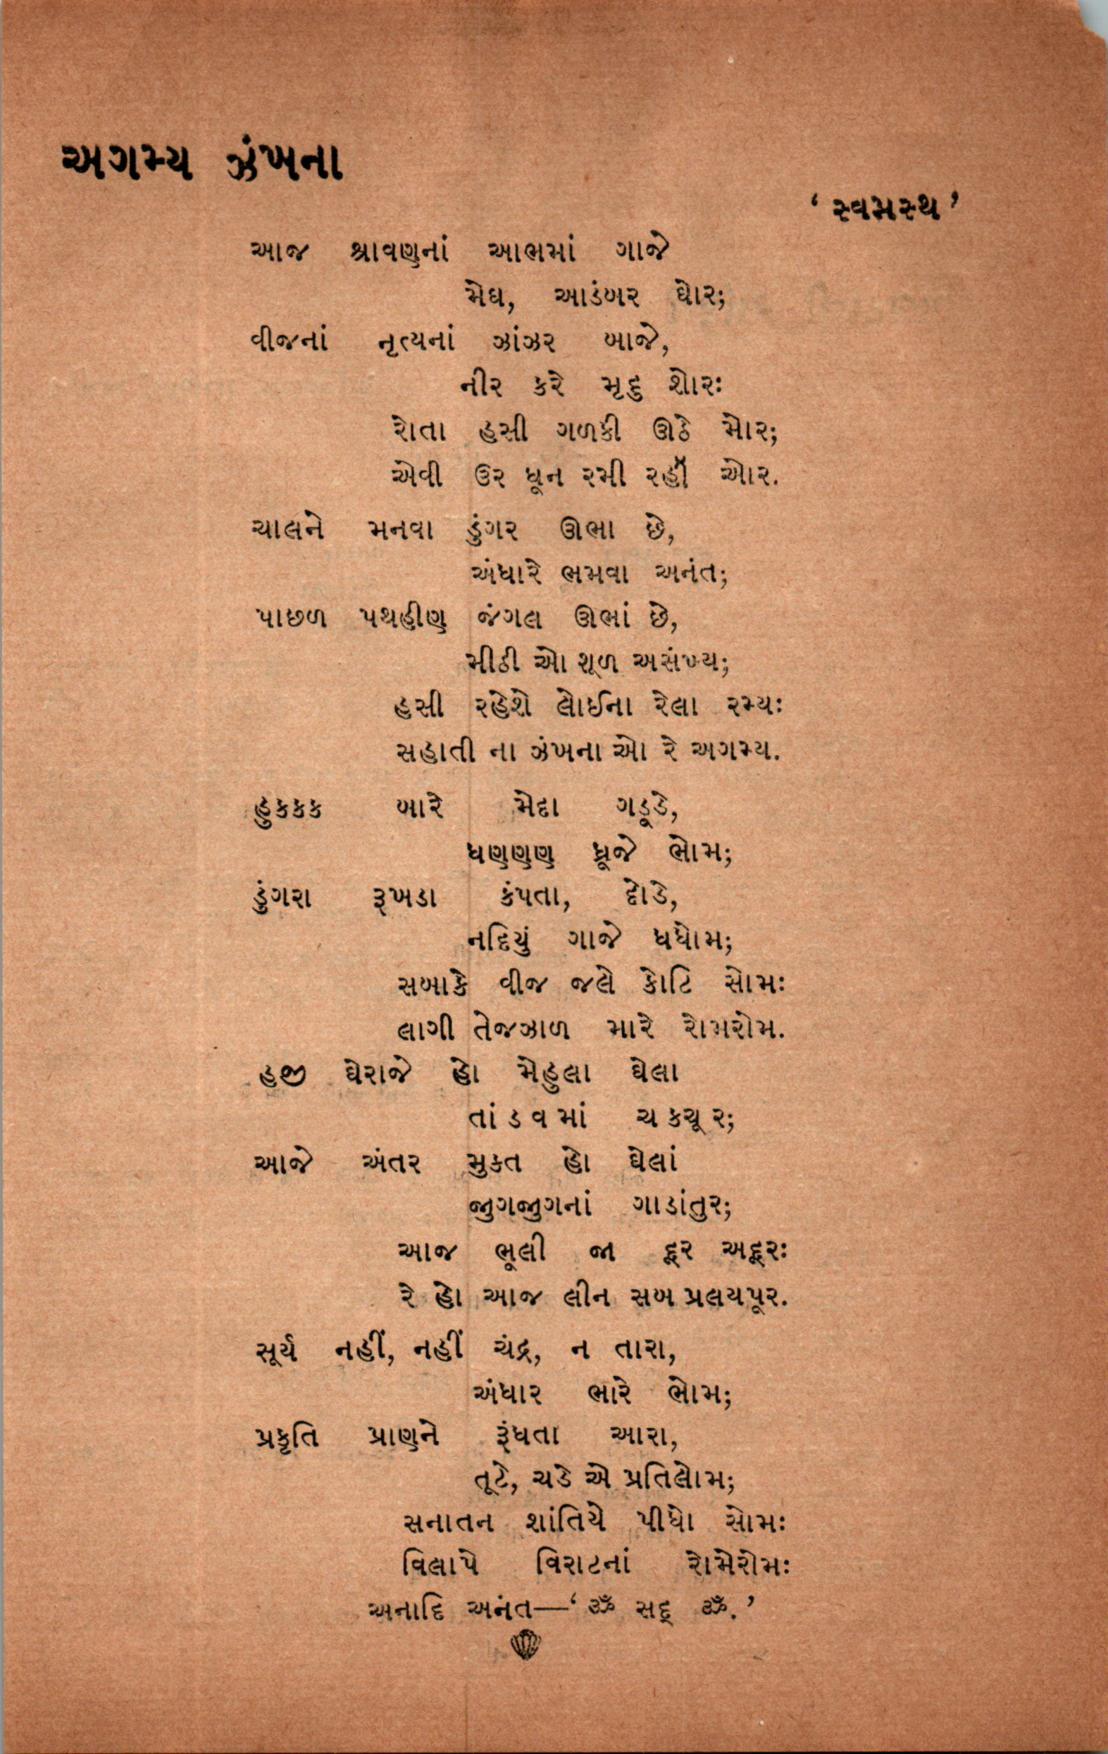 અગમ્ય ઝંખના
‘ સ્વમસ્થ ’
આજ શ્રાવણનાં આભમાં ગાજે
મેઘ, આડંબર ઘોર;
વીજનાં નૃત્યનાં ઝાંઝર બાજે,
નીર કરે મૃદુ શોરઃ
રોતા હસી ગળકી ઊઠે મોર;
એવી ઉર ધૂન રમી રહી ઓર.
ચાલને મનવા ડુંગર ઊભા છે,
અંધારે ભમવા અનંત;
પાછળ પથહીણ જંગલ ઊભાં છે,
મીઠી ઓ શૂળ અસંખ્ય;
હસી રહેશે લોઈના રેલા રમ્યઃ
સહાતી ના ઝંખના ઓ રે અગમ્ય.
હુકકક બારે મેદા ગડૂડે,
ધણણણ ધ્રૂજે ભોમ;
ડુંગરા રૂખડા કંપતા, દોડે,
નદિયું ગાજે ધધોમ;
સબાકે વીજ જલે કોટિ સોમઃ
લાગી તેજઝાળ મારે રોમરોમ.
હજી ઘેરાજે હો મેહુલા ઘેલા
તાંડવમાં ચકચૂર;
આજે અંતર મુક્ત હો ઘેલાં
જુગજુગનાં ગાડાંતુર;
આજ ભૂલી જા દૂર અદૂરઃ
રે હો આજ લીન સબ પ્રલયપૂર.
સૂર્ય નહીં, નહીં ચંદ્ર, ન તારા,
અંધાર ભારે ભોમ;
પ્રકૃતિ પ્રાણને રૂંધતા આરા,
તૂટે, ચડે એ પ્રતિલોમ;
સનાતન શાંતિયે પીધો સોમઃ
વિલાપે વિરાટનાં રોમેરોમઃ
અનાદિ અનંત—‘ ૐ સદ્ ૐ. ’